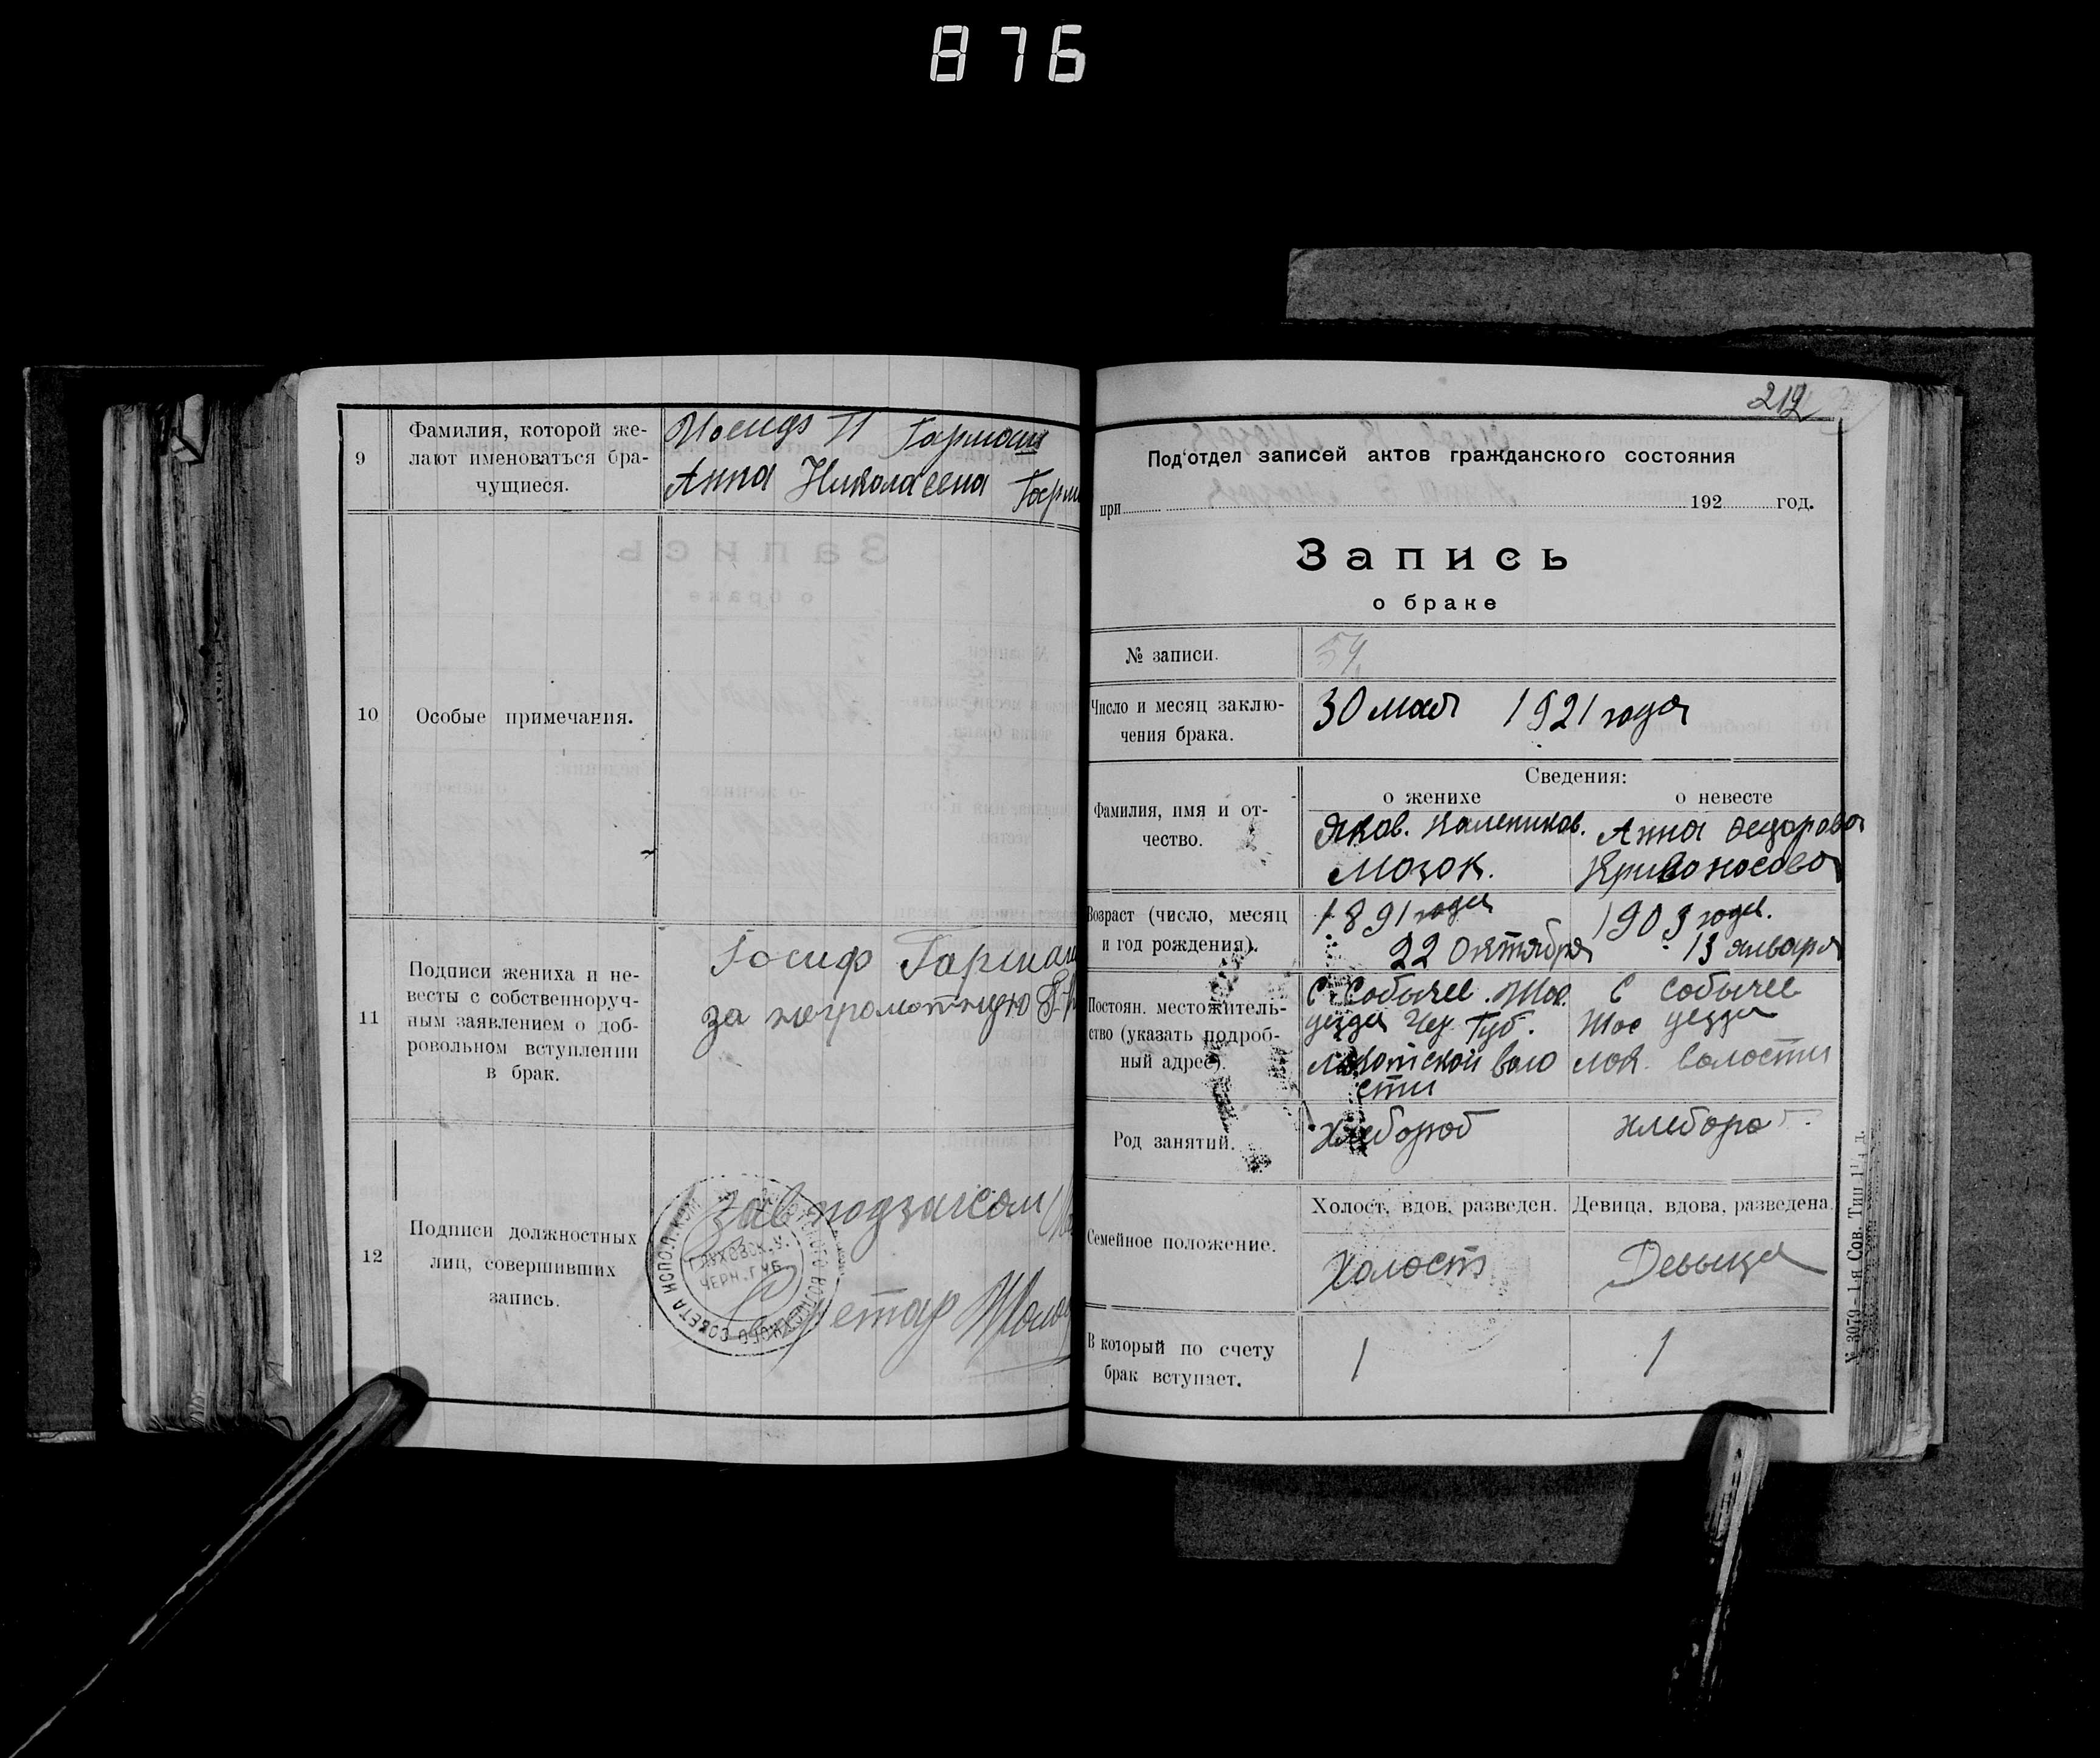 876
9
Фамилия, которой же-
лают именоваться бра-
чущиеся.
Иосиф И Гармаш
Анна Николаевна Гарм
10
Особые примечания.
11
Подписи жениха и не-
весты с собственноруч-
ным заявлением о доб-
ровольном вступлении
в брак.
Іосиф Гармаш
за неграмотную
12
Подписи должностных
лиц, совершивших
запись.
Зав подзагсом
Секретар
ГЛУХОВСК. У.
ЧЕРН. ГУБ.
СОВЕТА ИСПОЛ. КОМ
212
Под'отдел записей актов гражданского состояния
при 192 год.
Запись
о браке
№ записи.
54
Число и месяц заклю-
чения брака.
30 мая 1921 года
Сведения:
о женихе
о невесте
Фамилия, имя и от-
чество.
Яков. Калеников.
Мозок.
Анна Федорова
Кривоносова
Возраст (число, месяц
и год рождения).
1891 года
22 Октября
1903 года.
13 января
Постоян. местожитель-
ство (указать подроб-
ный адрес).
С. Собычее
уезда Чер. Губ.
Локотской воло
сти
С Собычее
уезда
Лок. волости
Род занятий.
хлебороб
хлеборо
Семейное положение.
Холост, вдов, разведен.
Девица, вдова, разведена.
Холост
Девыца
В который по счету
брак вступает.
1
1
№ 3079—1-я Сов. Тип.